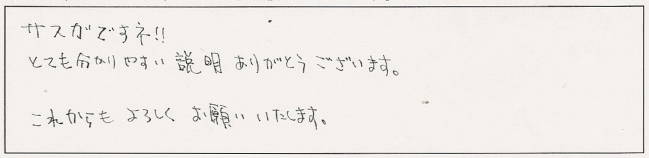 サスガですネ!!
とても分かりやすい説明ありがとうございます。
これからもよろしくお願いいたします。